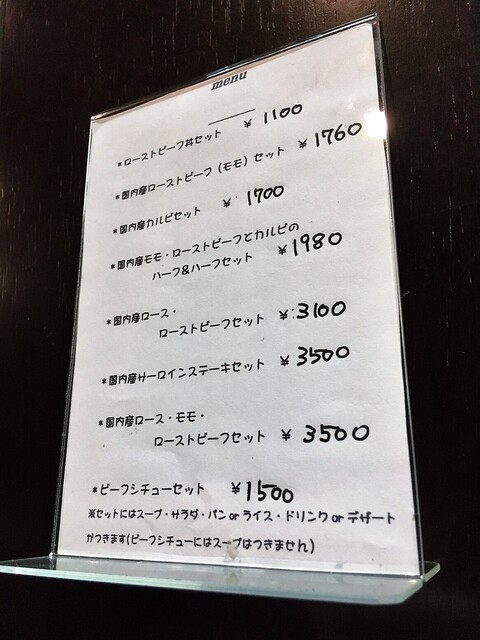 menu
*ローストビーフ丼セット ¥ 1100
*国内産ローストビーフ(モモ)セット ¥ 1760
*国内産カルビセット ¥ 1700
*国内産モモ・ローストビーフとカルビの
ハーフ&ハーフセット ¥ 1980
*国内産ロース・
ローストビーフセット ¥ 3100
*国内産サーロインステーキセット ¥ 3500
*国内産ロース・モモ・
ローストビーフセット ¥ 3500
*ビーフシチューセット ¥1500
※セットにはスープ・サラダ・パン or ライス・ドリンク or デザート
がつきます(ビーフシチューにはスープはつきません)